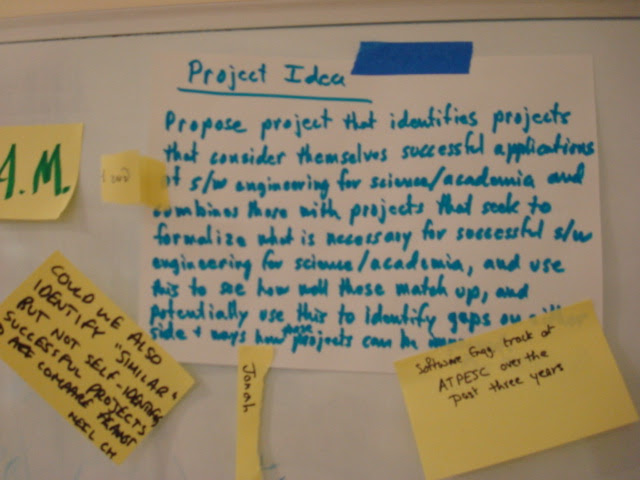 Project Idea
Propose project that identifies projects
that consider themselves successful applications
of s/w engineering for science/academia and
combines those with projects that seek to
formalize what is necessary for successful s/w
engineering for science/academia, and use
this to see how well those match up, and
potentially use this to identify gaps on either
side + ways how these projects can be
A.M.
COULD WE ALSO
IDENTIFY "SIMILAR"
BUT NOT SELF-IDENTIFIED
SUCCESSFUL PROJECTS
COMPARE
NEIL CH
Jonah
Software Eng. track at
ATPESC over the
past three years